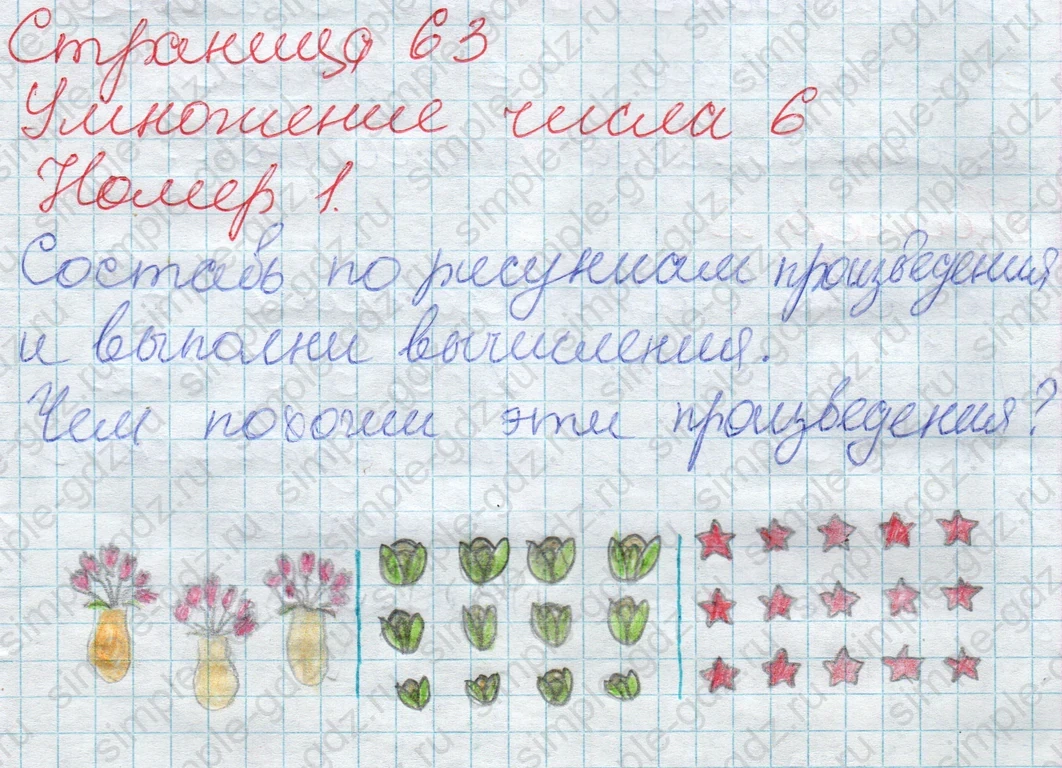 Страница 63
Умножение числа 6
Номер 1.
Составь по рисункам произведения
и выполни вычисления.
Чем похожи эти произведения?
simple-gdz.ru